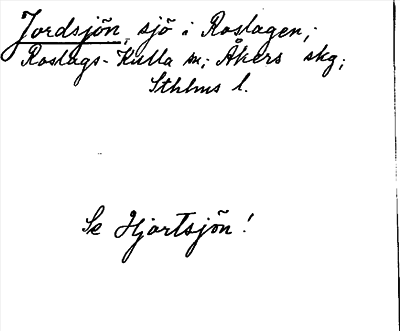 Jordsjön, sjö i Roslagen;
Roslags-Kulla sn; Åkers skg;
Sthlms l.
Se Hjortsjön!